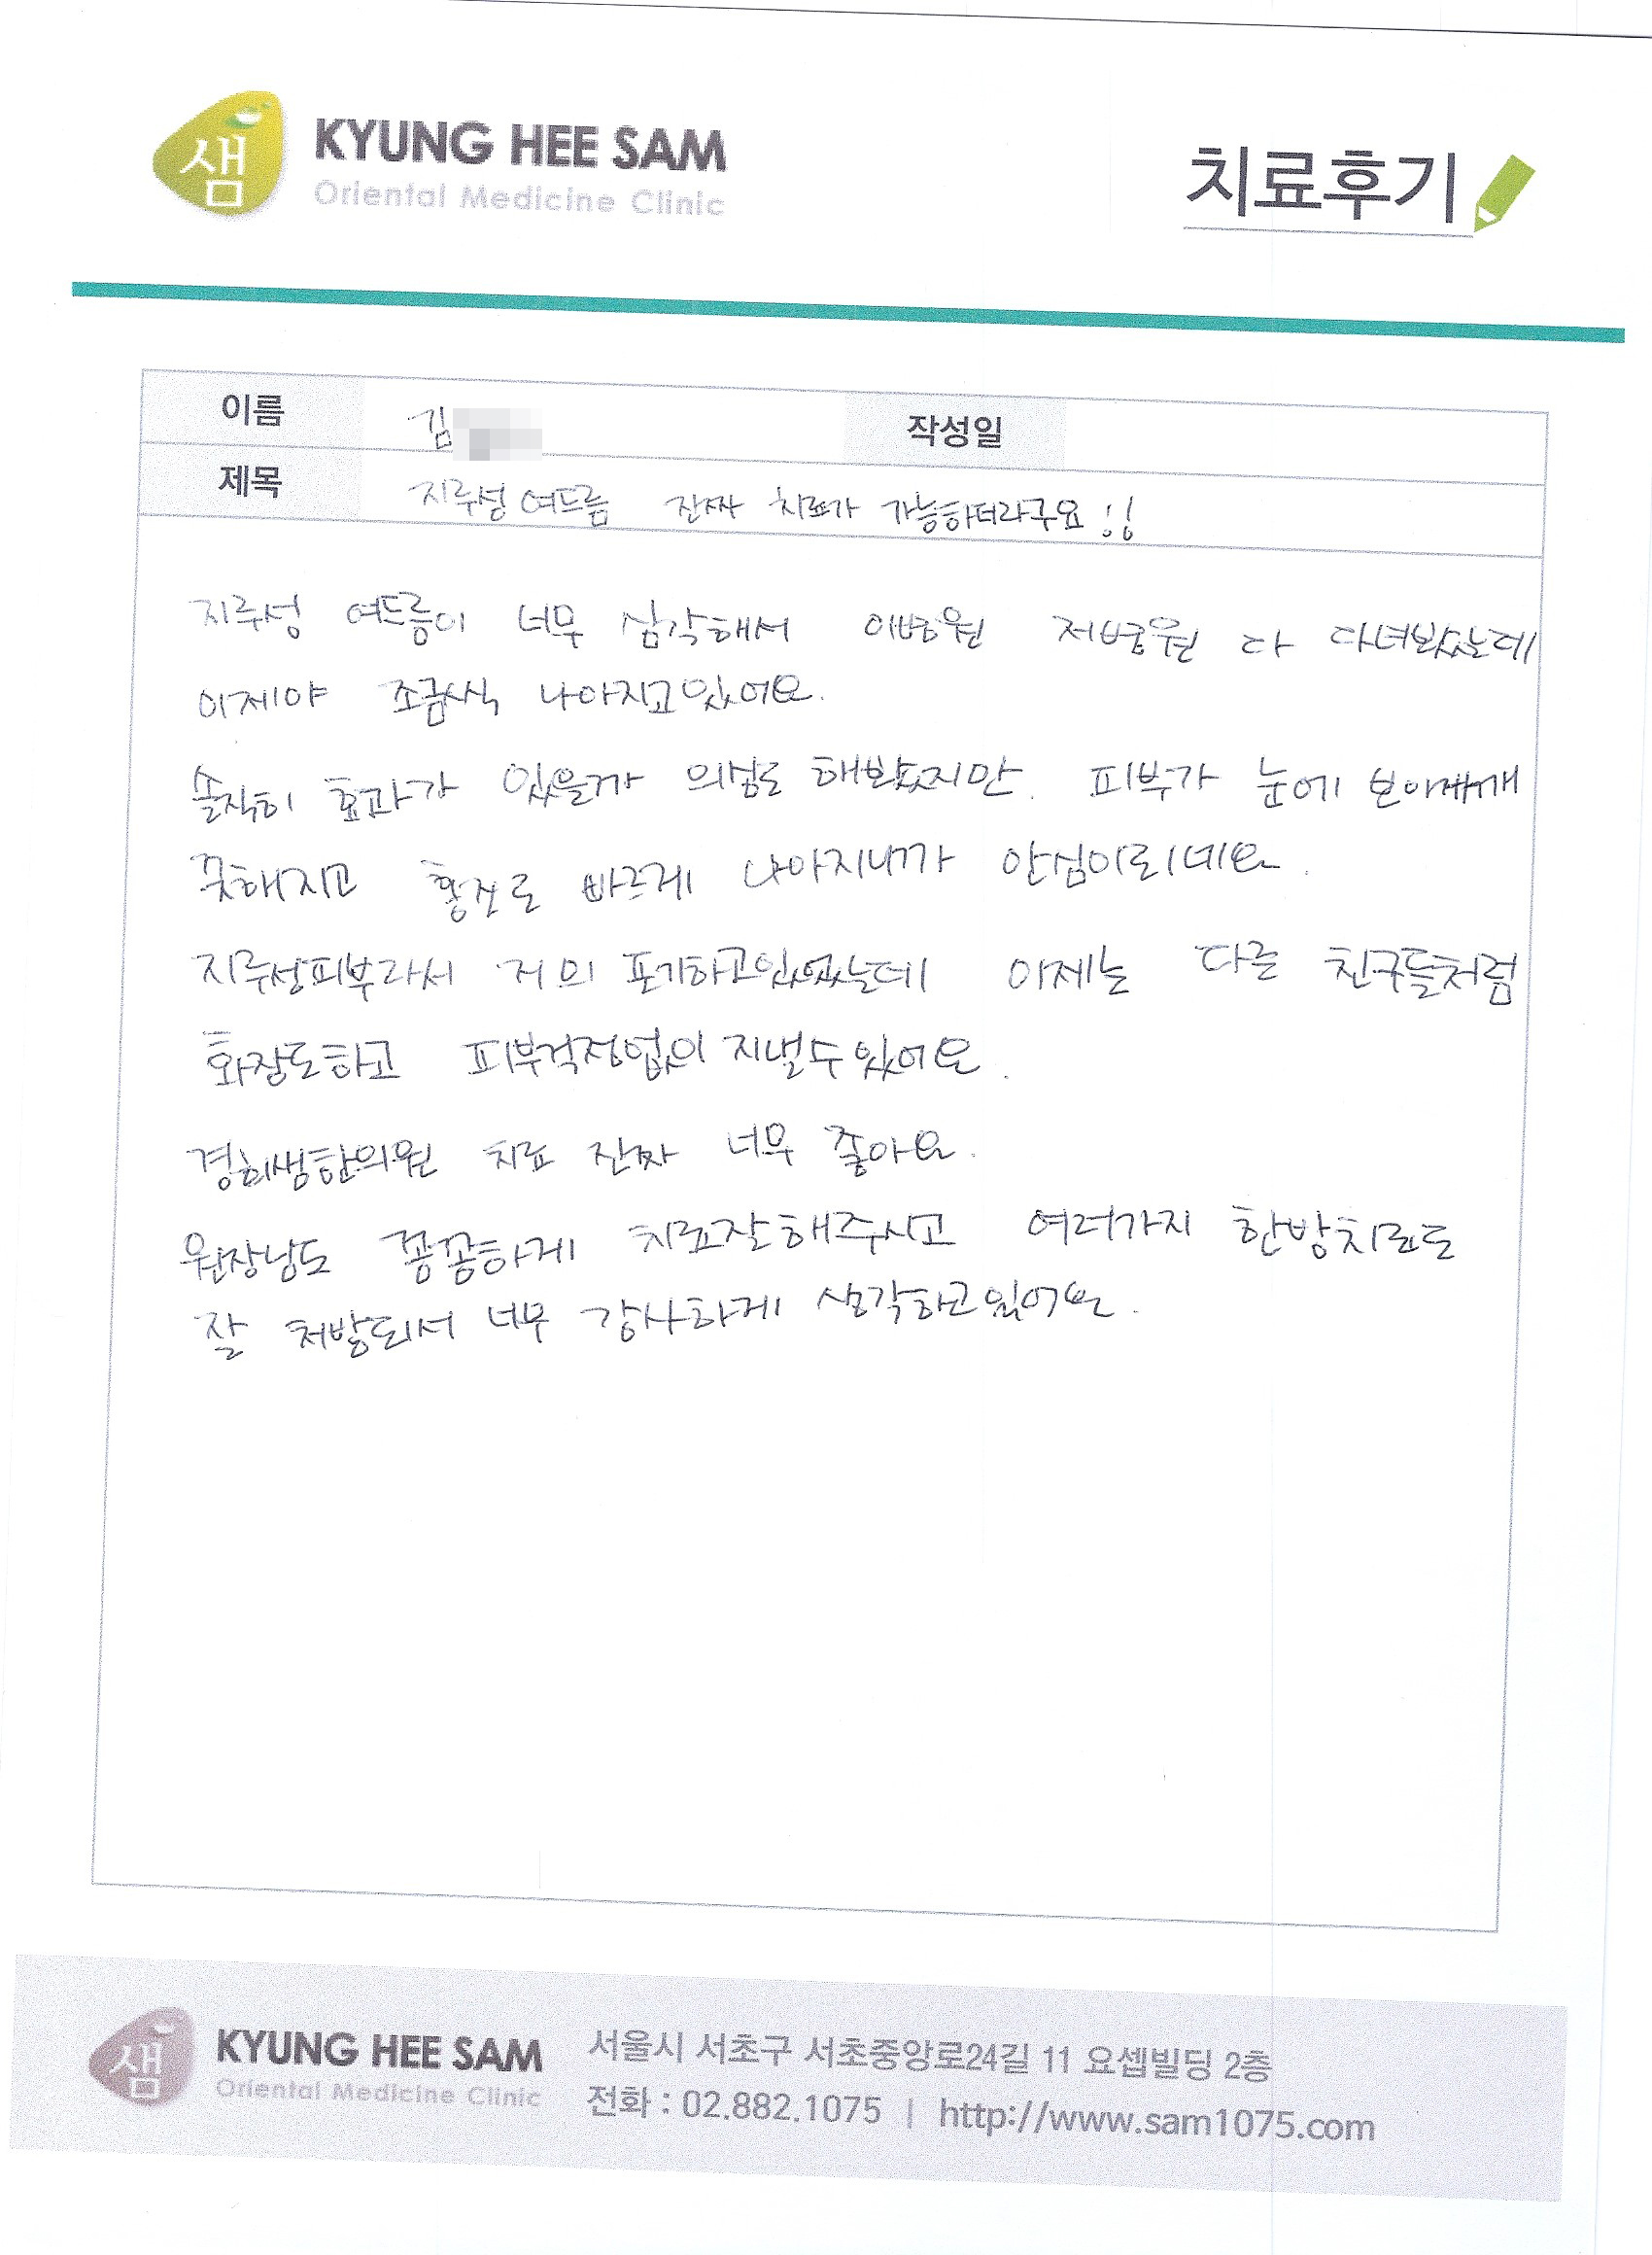 샘
KYUNG HEE SAM
Oriental Medicine Clinic
치료후기
이름 김 작성일
제목 지루성 여드름 진짜 치료가 가능하더라구요!!
지루성 여드름이 너무 심각해서 이병원 저병원 다 다녀봤었는데
이제야 조금씩 나아지고있어요.
솔직히 효과가 있을까 의심도 해봤었지만. 피부가 눈에
깨끗해지고 홍조도 빠르게 나아지니까 안심이되네요.
지루성피부라서 거의 포기하고있었는데 이제는 다른 친구들처럼
화장도하고 피부걱정없이 지낼수있어요.
경희샘한의원 치료 진짜 너무 좋아요.
원장님도 꼼꼼하게 치료잘해주시고 여러가지 한방치료도
잘 처방되서 너무 감사하게 생각하고있어요.
샘
KYUNG HEE SAM
Oriental Medicine Clinic
서울시 서초구 서초중앙로24길 11 요셉빌딩 2층
전화 : 02.882.1075 | http://www.sam1075.com